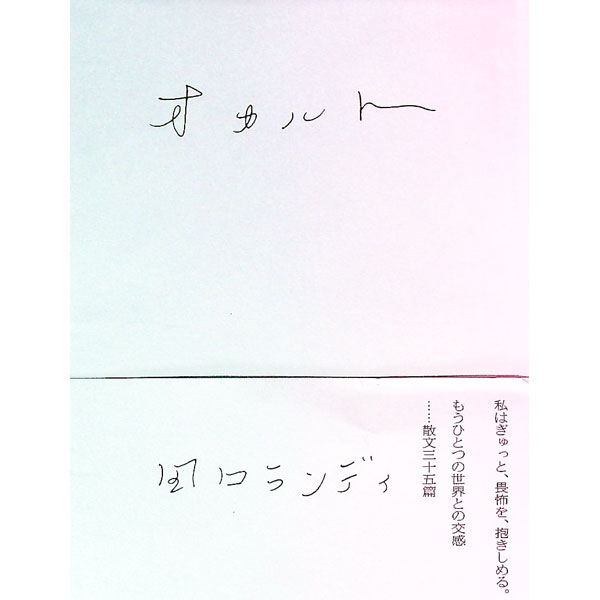 オカルト
田口ランディ
私はぎゅっと、畏怖を、抱きしめる。
もうひとつの世界との交感
……散文三十五篇